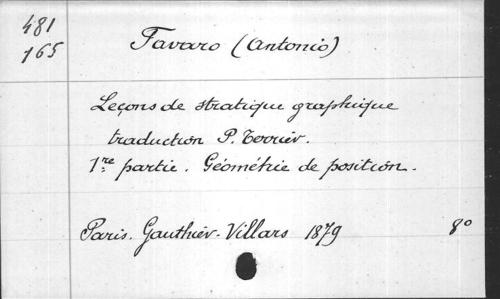 481
165
Favaro (Antonio)
Leçons de stratique graphique
traduction P. Terrier.
1re partie. Géométrie de position.
Paris. Gauthier-Villars 1879 8º